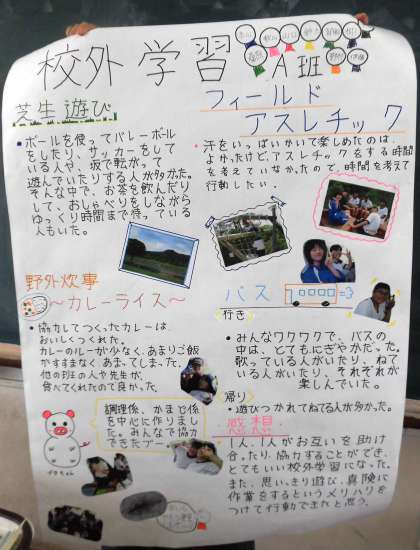 校外学習
A班
芝生遊び
・ボールを使ってバレーボール
をしたり、サッカーをして
いる人や、坂で転がって
遊んでいたりする人が多かった。
そんな中で、お茶を飲んだり
して、おしゃべりをしながら
ゆっくり時間まで待っている
人もいた。
フィールド
アスレチック
・汗をいっぱいかいて楽しめたのは、
よかったけど、アスレチックをする時間
を考えていなかったので、時間を考えて
行動したい。
野外炊事
～カレーライス～
・協力してつくったカレーは、
おいしくつくれた。
カレーのルーが少なく、あまりご飯
がすすまなく、あまってしまった。
他の班の人や先生が、
食べてくれたので良かった。
調理係、かまど係
を中心に作りまし
た。みんなで協力
できたブー。
バス
行き
・みんなワクワクで、バスの
中は、とてもにぎやかだった。
歌っている人がいたり、ねて
いる人がいたり、それぞれが
楽しんでいた。
帰り
・遊びつかれてねてる人が多かった。
感想
1人1人がお互いを助け
合ったり、協力することができ、
とてもいい校外学習になった。
また、思いっきり遊び、真険に
作業をするというメリハリを
つけて行動できたと思う。